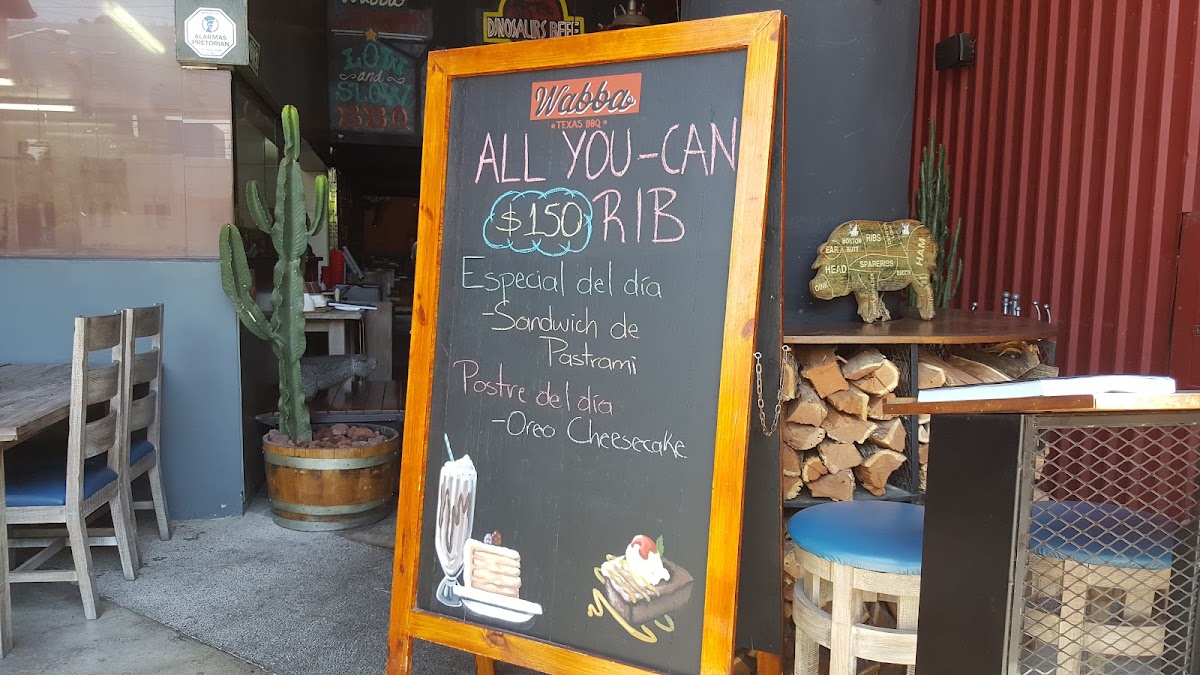 ALARMAS
PRETORIAN
Wabba
LOW
and
SLOW
BBQ
DINOSAURS BEEF
Wabba
TEXAS BBQ
ALL YOU-CAN
$150 RIB
Especial del día
-Sandwich de
Pastrami
Postre del día
-Oreo Cheesecake
BOSTON
BUTT
RIBS
EAR
HEAD
SPARERIBS
HAM
OINK
BACON